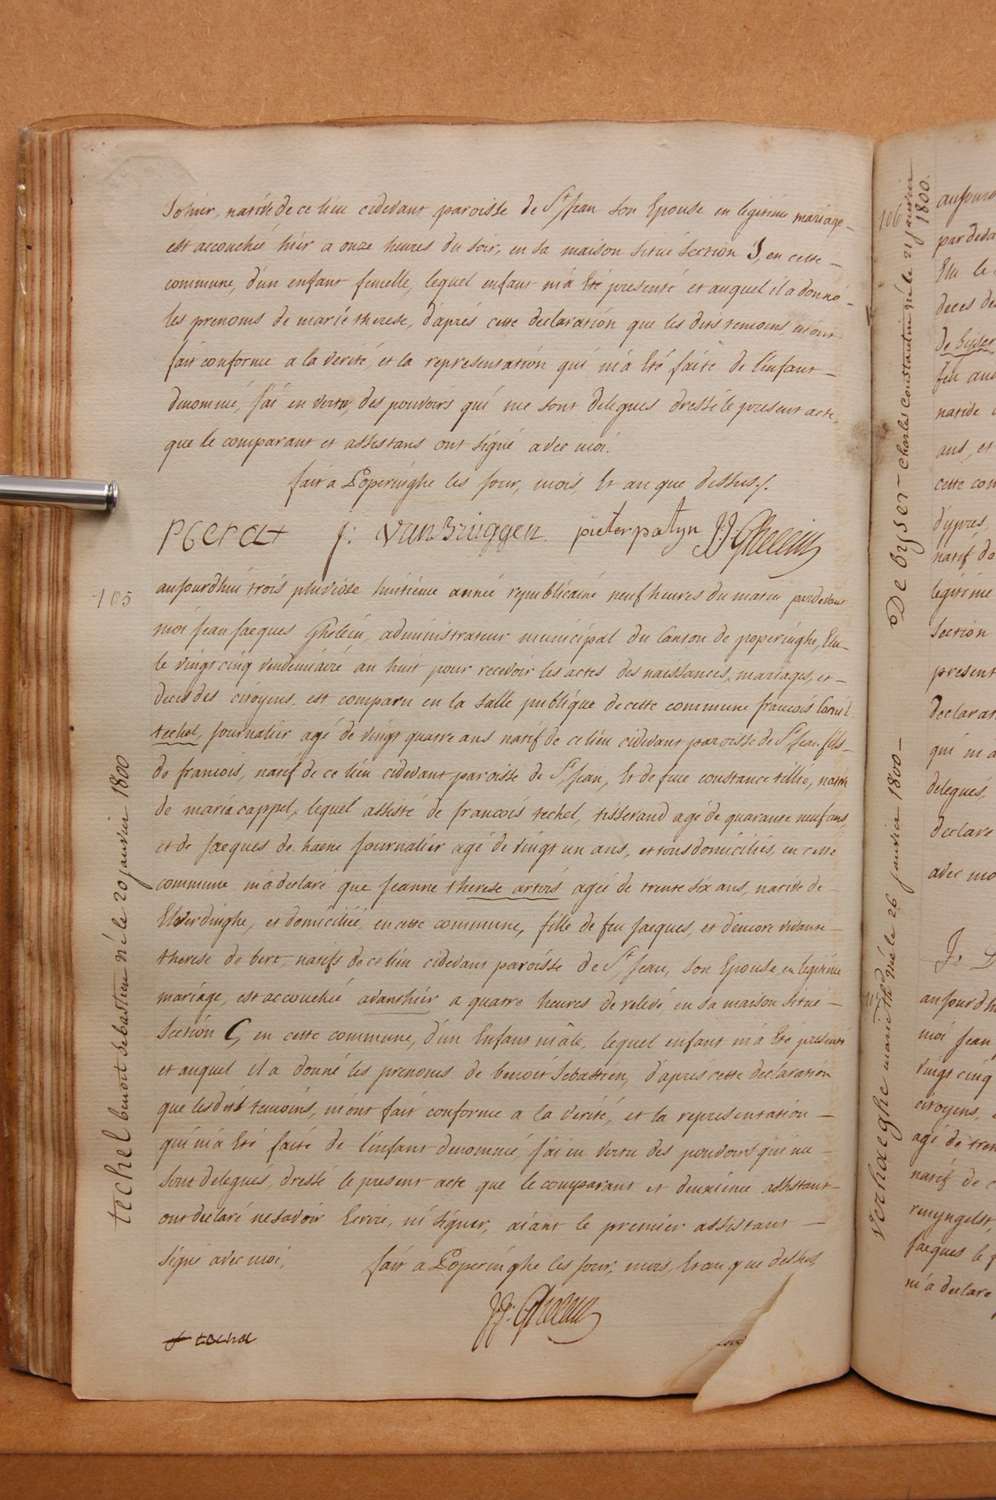 Sohier, native de ce lieu cidevant paroisse de St Jean son Epouse en legitime mariage
est accouchée hier a onze heures du soir, en sa maison située section I, en cette
commune, d'un enfant femelle, lequel enfant m'a Eté presenté et auquel il a donné
les prenoms de marie therese, d'après cette declaration que les dits temoins m'ont
fait conforme a la verité, et la representation qui m'a Eté faite de l'enfant
denommé, j'ai en vertu des pouvoirs qui me sont delegués dressé le present acte,
que le comparant et assistans ont signé avec moi.
fait a Poperinghe les jour, mois, Et an que dessus.
J: Vanbruggen pieter patyn J:J: Ghelein
105
aujourdhui trois pluviôse huitieme année republicaine neuf heures du matin pardevant
moi Jean Jacques Ghelein, administrateur municipal du Canton de poperinghe, Elu
le vingt cinq vendemiaire an huit pour recevoir les actes des naissances, mariages, et
deces des citoyens est comparu en la salle publique de cette commune francois
techel, journalier agé de vingt quatre ans natif de ce lieu cidevant paroisse de St Jean fils
de francois, natif de ce lieu cidevant paroisse de St Jean, Et de feue constance tillie, native
de maria cappel, lequel assisté de francois techel, tisserand agé de quarante neuf ans,
et de Jacques de haene journalier agé de vingt un ans, et tous domiciliés, en cette
commune m'a declaré que Jeanne therese artois agée de trente six ans, native de
Elverdinghe, et domiciliée en cette commune, fille de feu Jacques, et d'encore vivante
therese de bert natifs de ce lieu cidevant paroisse de St Jean, son Epouse en legitime
mariage, est accouchée avanthier a quatre heures de relevé en sa maison située
section C, en cette commune, d'un Enfant mâle, lequel enfant m'a Eté presenté
et auquel il a donné les prenoms de benoit Sebastien, d'apres cette declaration
que les dits temoins, m'ont fait conforme a la verité, et la representation
qui m'a Eté faite de l'enfant denommé, j'ai en vertu des pouvoirs qui me
sont delegués, dressé le present acte que le comparant et deuxieme assistant
ont declaré ne savoir Ecrire, ni signer, aiant le premier assistant
signé avec moi,
fait a Poperinghe les jour, mois, Et an que dessus
J:J: Ghelein
f techel
techel benoit sebastien né le 20 janvier 1800
106
De byser charles constantin né le 21 janvier 1800.
Verhaeghe marie né le 26 janvier 1800
aujourd
pardeva
Elu le
deces de
feu
native
ans, et
cette com
d'ypres,
natif de
legitime
Section
present
declarat
qui m'a
delegués,
declaré
avec mo
aujourd'h
moi Jean
vingt cinq
citoyens,
agé de tren
natif de
renyngelst,
Jacques le
m'a declaré